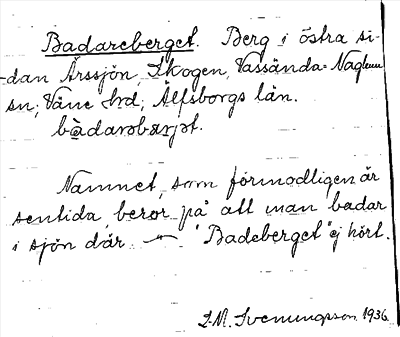 Badareberget. Berg i östra si-
dan Årssjön, Skogen, Vassända-Naglum
sn; Väne hrd; Älfsborgs län.
bàdarəbærjət.
Namnet, som förmodligen är
sentida, beror på att man badar
i sjön där. — "Badeberget" ej hört.
Svenningsson 1936